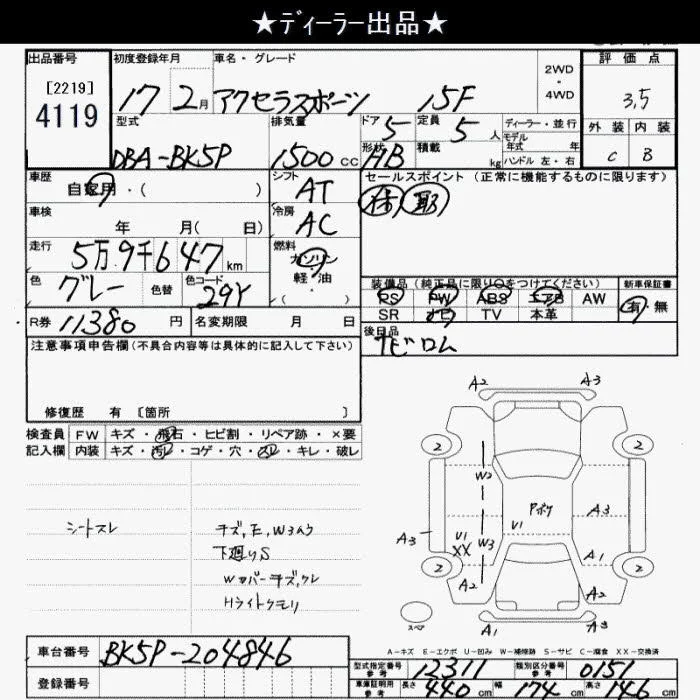 ★ディーラー出品★
出品番号 初度登録年月 車名・グレード 2WD・4WD 評価点
[2219]
4119 17 2月 アクセラスポーツ 15F 3.5
型式 排気量 ドア 5 定員 5人 ディーラー・並行 外装 内装
モデル年式 年
DBA-BK5P 1500cc 形状 HB 積載 kg ハンドル 左・右 C B
車歴 シフト セールスポイント(正常に機能するものに限ります)
自家用・( ) AT
車検 冷房
年 月( 日) AC
走行 燃料
5万9千647km ガソリン
軽・油
( )
色 グレー 色替 色コード 29Y
装備品(純正品に限り○をつけてください) 新車保証書
PS PW ABS エアB AW 有・無
SR ナビ TV 本革
R券 11380円 名変期限 月 日 後日品
ナビロム
注意事項申告欄(不具合内容等は具体的に記入して下さい)
修復歴 有 [箇所 ]
検査員 FW キズ・飛石・ヒビ割・リペア跡・×要
記入欄 内装 キズ・汚レ・コゲ・穴・スレ・キレ・破レ
シートスレ
キズ,E,W3ムラ
下廻りS
Wバイザーキズ,クレ
Hライトクモリ
A2 A3
2 2
W2
Pボケ A3
A3 U1 XX W3 U1
A1
2 2
A2 A2
スペア A1 A3
A-キズ E-エクボ U-凹み W-補修跡 S-サビ C-腐食 XX-交換済
車台番号 BK5P-204846
登録番号
型式指定番号 参考 12311 類別区分番号 参考 0151
車庫証明用 参考 長さ 440cm 幅 174cm 高さ 146cm